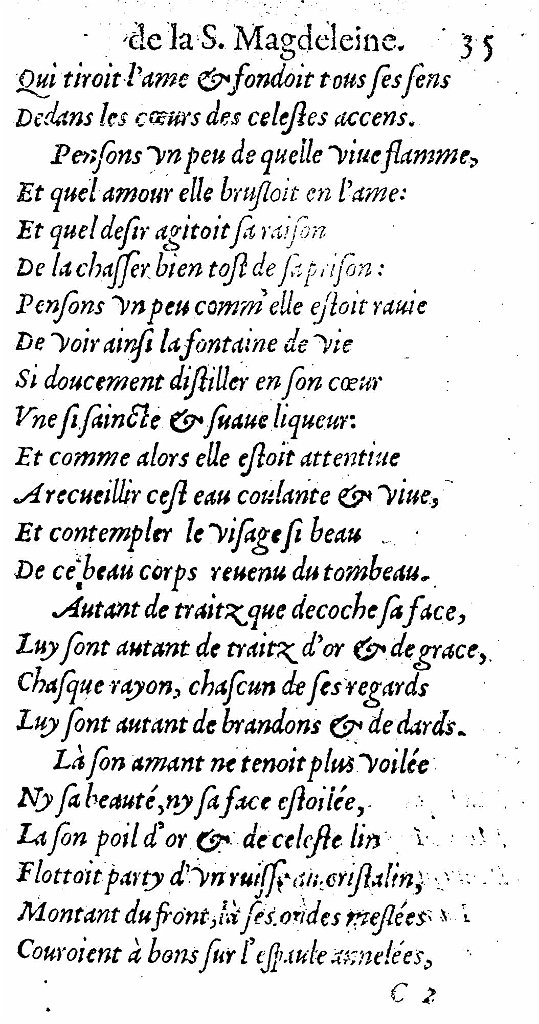 de la S. Magdeleine. 35
Qui tiroit l'ame & fondoit tous ſes ſens
Dedans les cœurs des celeſtes accens.
Penſons vn peu de quelle viue flamme,
Et quel amour elle bruſloit en l'ame:
Et quel deſir agitoit ſa raiſon
De la chaſſer bien toſt de ſa priſon:
Penſons vn peu comm' elle eſtoit rauie
De voir ainſi la fontaine de vie
Si doucement diſtiller en ſon cœur
Vne ſi ſaincte & ſuaue liqueur:
Et comme alors elle eſtoit attentiue
A recueillir ceſt eau coulante & viue,
Et contempler le viſage ſi beau
De ce beau corps reuenu du tombeau.
Autant de traitz que decoche ſa face,
Luy ſont autant de traitz d'or & de grace,
Chaſque rayon, chaſcun de ſes regards
Luy ſont autant de brandons & de dards.
Là ſon amant ne tenoit plus voilée
Ny ſa beauté, ny ſa face eſtoilée,
La ſon poil d'or & de celeſte lin
Flottoit party d'vn ruiſſeau criſtalin,
Montant du front, là ſes ondes meſlées
Couroient à bons ſur l'eſpaule annelées,
C 2